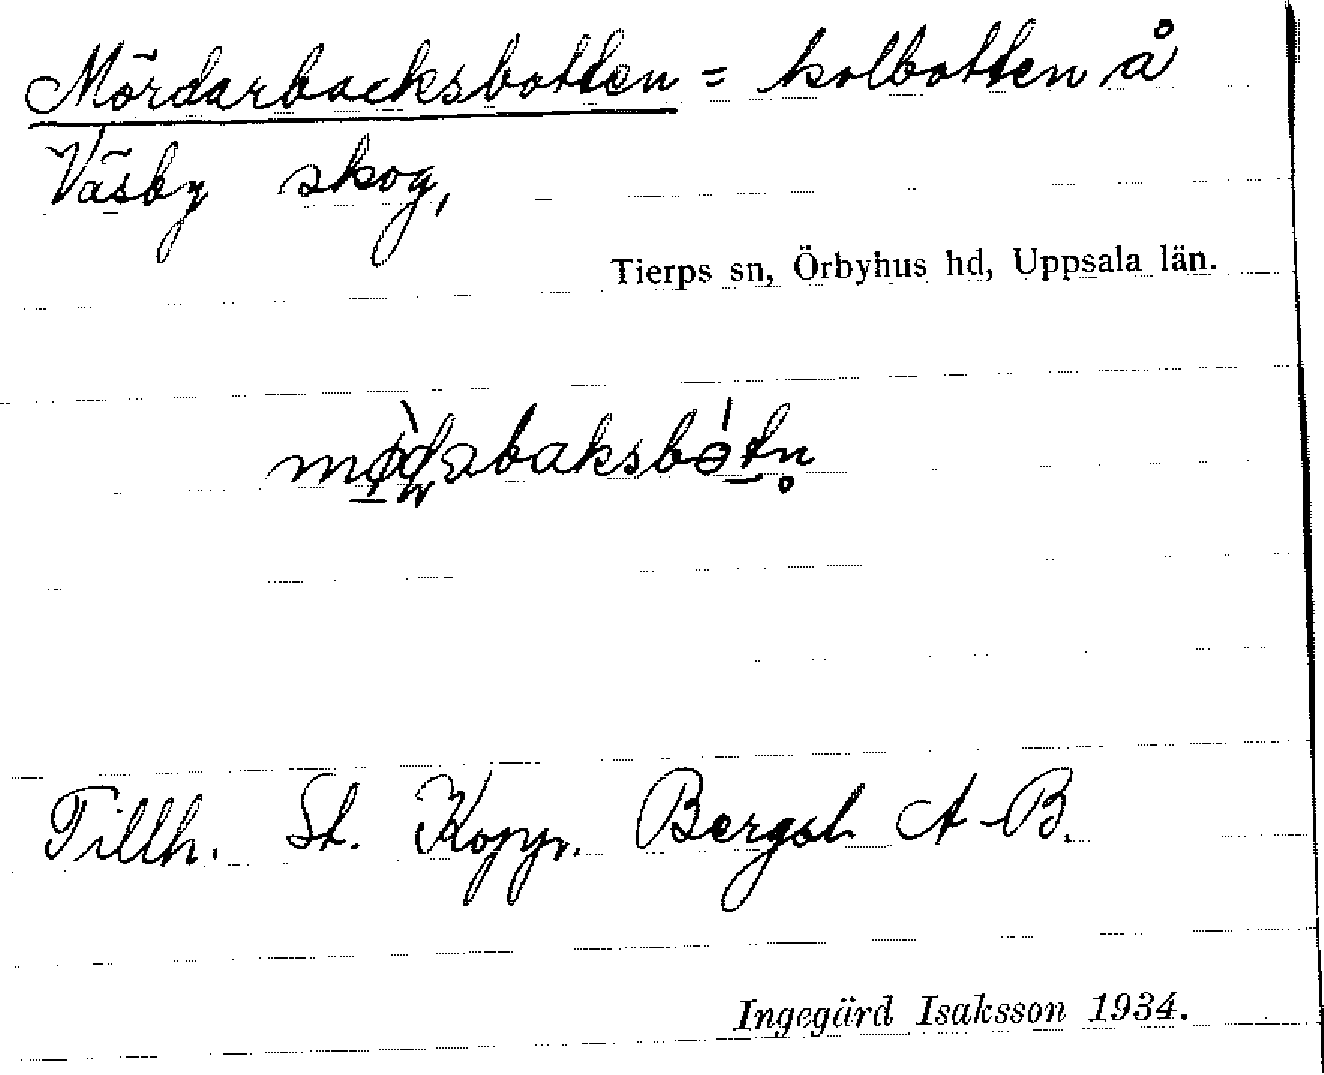 Mördarbacksbotten = kolbotten å
Väsby skog,
Tierps sn, Örbyhus hd, Uppsala län.
Tillh. St. Kopp. Bergsl. A-B.
Ingegärd Isaksson 1934.